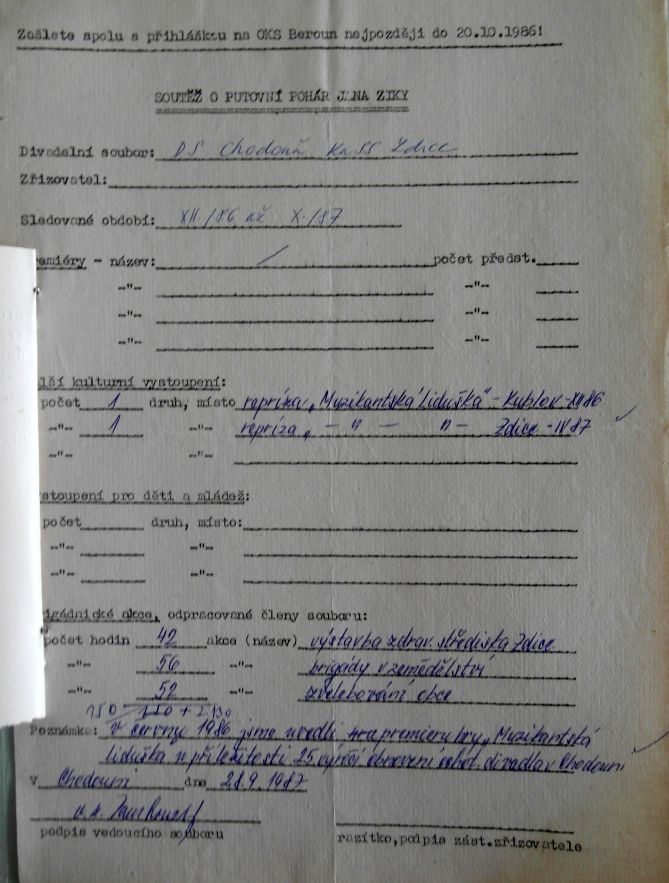 Zašlete spolu s přihláškou na OKS Beroun nejpozději do 20.10.1986!
SOUTĚŽ O PUTOVNÍ POHÁR JANA ZIKY
Divadelní soubor: DS Chodouň KaSS Zdice
Zřizovatel:
Sledované období: XII./86 až X./87
emiéry - název: / počet předst.
-"- -"-
-"- -"-
-"- -"-
lší kulturní vystoupení:
počet 1 druh, místo repríza „Muzikantská Liduška" - Kublov - XII 86
-"- 1 -"- repríza „ - " - " - Zdice - IV 87
-"- -"-
stoupení pro děti a mládež:
počet druh, místo:
-"- -"-
-"- -"-
igádnické akce, odpracované členy souboru:
počet hodin 42 akce (název) výstavba zdrav. střediska Zdice
-"- 56 -"- brigády v zemědělství
-"- 52 -"- zvelebování obce
150
Poznámka: v červnu 1986 jsme uvedli premieru hry „Muzikantská
Liduška u příležitosti 25. výročí obnovení ochot. divadla v Chodouni
v Chodouni dne 28.9.1987
podpis vedoucího souboru
razítko, podpis zást. zřizovatele